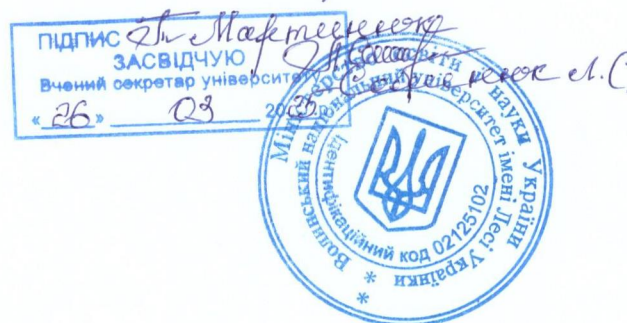 ПІДПИС
ЗАСВІДЧУЮ
Вчений секретар університету
« 26 » 03 20 р.
Міністерство освіти і науки України
* Волинський національний університет імені Лесі Українки *
Ідентифікаційний код 02125102